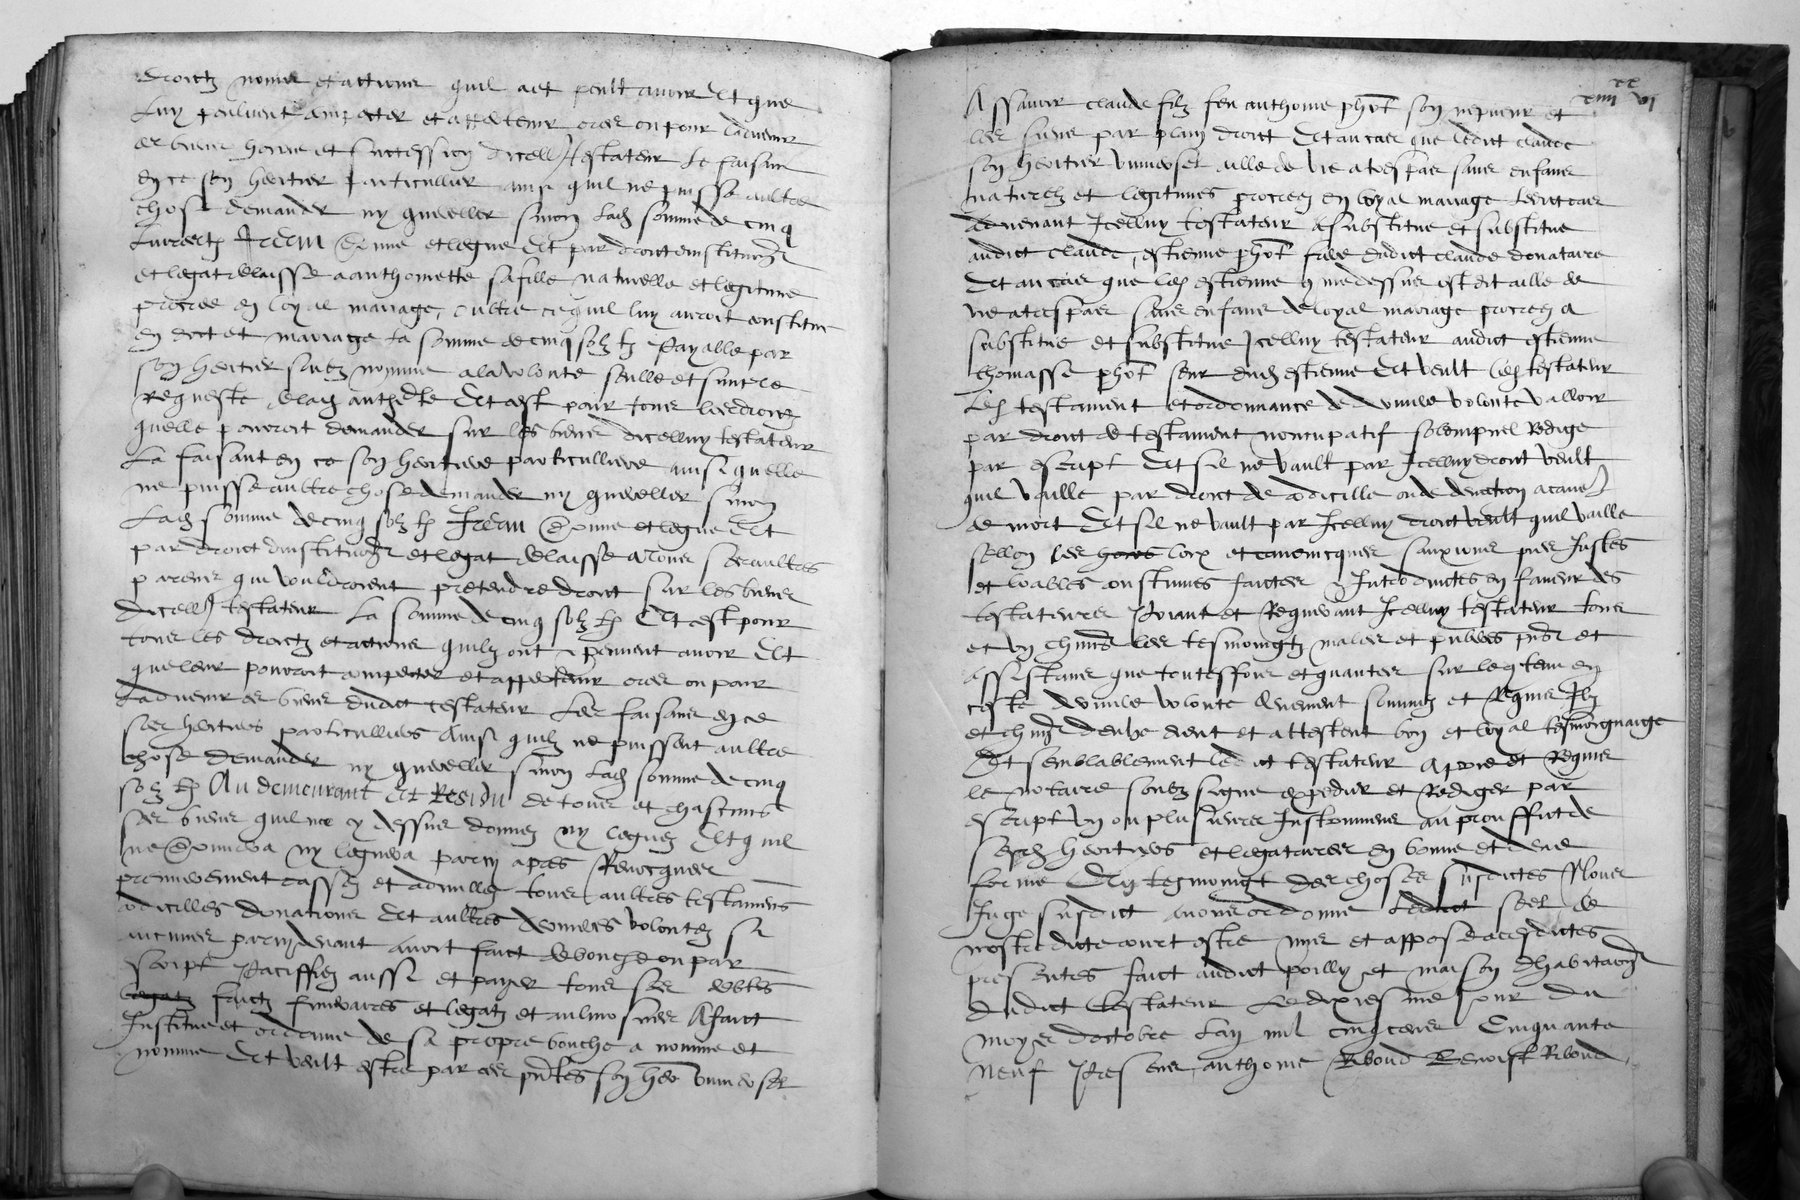 droictz noms et actions quil a et peult avoir Et que
luy peulvent competer et appertenir ores ou pour ladvenir
es biens hoirie et succession dicelluy testateur le faisant
en ce son heritier particullier ainsi quil ne puisse aultre
chose demander ny quereller sinon lad somme de cinq
livres tz Item donne et legue Et par droict dinstitution
et legat delaisse a anthoinette sa fille naturelle et legitime
procree en loyal mariage, oultre ce quil luy auroit constitue
en dot et mariage la somme de cinq solz tz payable par
son heritier soubz nomme a la volonte seulle et simple
Requeste de lad anthte Et cest pour tous les droictz
quelle pourroit demander sur les biens dicelluy testateur
La faisant en ce son heritiere particulliere ainsi quelle
ne puisse aultre chose demander ny quereller sinon
Lad somme de cinq solz tz Item donne et legue Et
par droict dinstitution et legat delaisse a tous ses aultres
parens qui vouldroient pretendre droit sur les biens
dicelluy testateur la somme de cinq solz tz Et cest pour
tous les droictz et actions quilz ont et peuvent avoir Et
que leur pourroit competer et appertenir ores ou pour
ladvenir es biens dudict testateur Les faisans en ce
ses heritiers particulliers Ainsi quilz ne puissent aultre
chose demander ny quereller sinon lad somme de cinq
solz tz Au demeurant Et Residu de tous et chascuns
ses biens quil na cy dessus donnez ny leguez Et quil
ne donnera ny leguera parcy apres Revocquer
premierement cassez et adnullez tous aultres testamens
codicilles donations Et aultres dernieres volontez si
aucunes parcy devant avoit faict de bouche ou par
script Pacifflez aussi et payer tous ses debtes
legatz faictz funeraires et legatz et aulmosnes A faict
Institue et ordonne de sa propre bouche a nomme et
nomme Et veult estre par ces pntes son her universel
xx
iiii vi
Assavoir claude filz feu anthoine phot son nepveur et
les siens par plain droict Et au cas que ledict claude
son heritier universel aille de vie a trespas sans enfans
naturelz et legitimes procreez en loyal mariage ledict cas
advenant Icelluy testateur a substitue et substitue
audict claude, estienne phot frere dudict claude donataire
Et au cas que led estienne cy medessus est dit aille de
vie a trespas sans enfans de loyal mariage procreez a
substitue et substitue Icelluy testateur audict estienne
thomasse phot seur dud estienne Et veult led testateur
Led testament et ordonnance de derniere volonte valloir
par droict de testament noncupatif solempnel Redige
par escript Et sil ne vault par Icelluy droict veult
quil vaille par droict de codicille ou de donation a cause
de mort Et sil ne vault par Icelluy droict veult quil vaille
sellon les loix et canonicques sanxions pies Justes
et loables coustumes faictes et Introduictes en faveur des
testateurs Priant et Requerant Icelluy testateur tous
et ung chūns les tesmoingtz masles et puberes pnts et
assistans que touteffoys et quantes sur le contenu en
ceste derniere volonte seront sommez et Requis Ilz
et chūn deulx dient et attestent bon et loyal tesmoignaige
Et semblablement ledict testateur a prie et Requis
le notaire soubz signe expedier et Rediger par
escript un ou plusieurs Instrumens au prouffit de
sesd heritiers et legataires en bonne et deue
forme En tesmoingt des choses susdictes Nous
Juge susdict avons ordonne Ledict seel de
nostre dicte court estre mis et appose a ces dictes
presentes faict audict poilly et maison dhabitation
dudict testateur Le dixiesme jour du
moys doctobre Lan mil cinq cens Cinquante
Neuf Presens anthoine Riboud Benoist Riboud